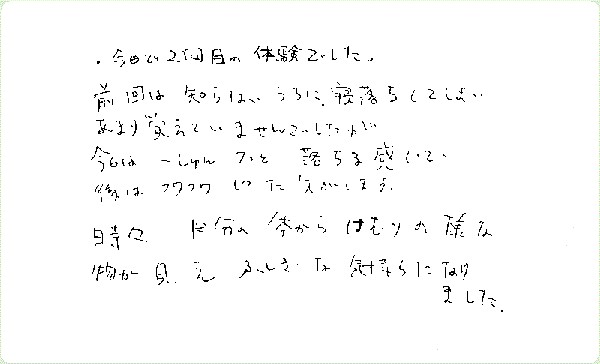 ・今回で2回目の体験でした。
前回は知らないうちに寝落ちしてしまい
あまり覚えていませんでしたが
今回は一しゅんフッと落ちる感じで
後はフワフワした気がします。
時々自分の体からけむりの様な
物が見えふしぎな気持ちになり
ました。